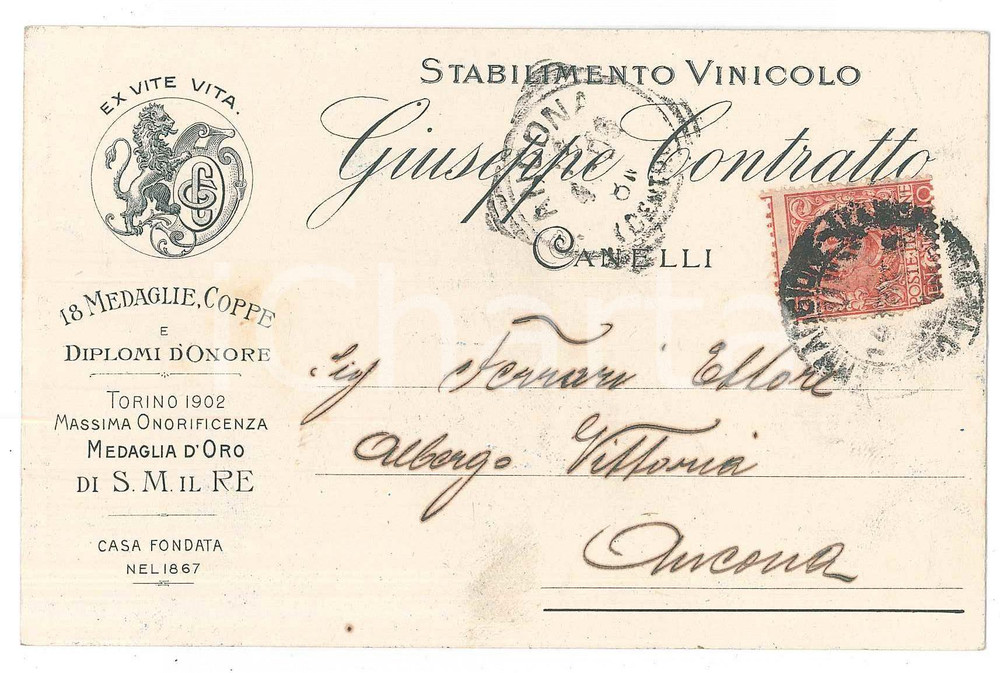 EX VITE VITA.
GC
18 MEDAGLIE, COPPE
E
DIPLOMI D'ONORE
TORINO 1902
MASSIMA ONORIFICENZA
MEDAGLIA D'ORO
DI S. M. IL RE
CASA FONDATA
NEL 1867
STABILIMENTO VINICOLO
Giuseppe Contratto
CANELLI
ANCONA
(CENTRO)
POSTE ITALIANE
Sig Ferrari Ettore
Albergo Vittoria
Ancona
iCharta